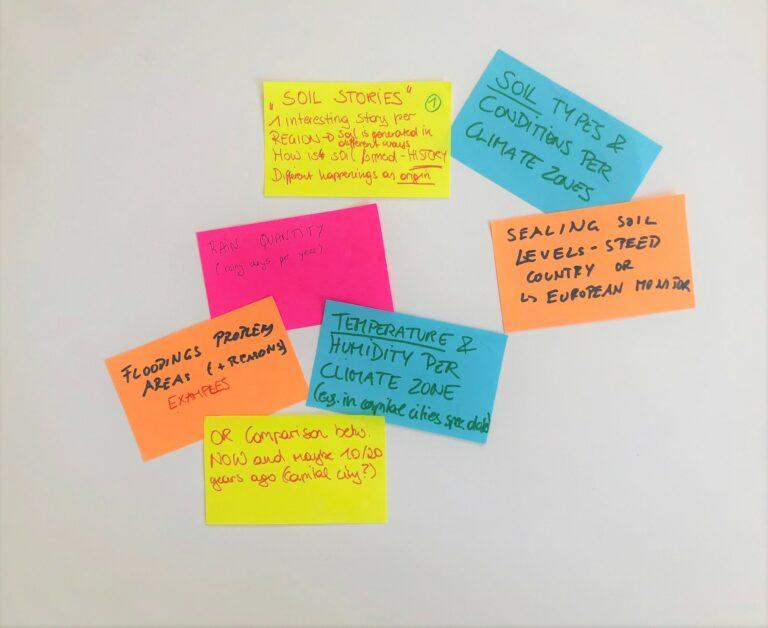 „SOIL STORIES"
1
1 interesting story per
REGION → Soil is generated in
different ways
How is soil formed - HISTORY
Different happenings as origin
SOIL TYPES &
CONDITIONS PER
CLIMATE ZONES
SEALING SOIL
LEVELS - SPEED
COUNTRY OR
↳ EUROPEAN MONITOR
RAIN QUANTITY
(rainy days per year)
FLOODINGS PROBLEM
AREAS (+ REASONS)
EXAMPLES
TEMPERATURE &
HUMIDITY PER
CLIMATE ZONE
(e.g. in capital cities, spec. date)
OR Comparison betw.
NOW and maybe 10/20
years ago (capital city?)